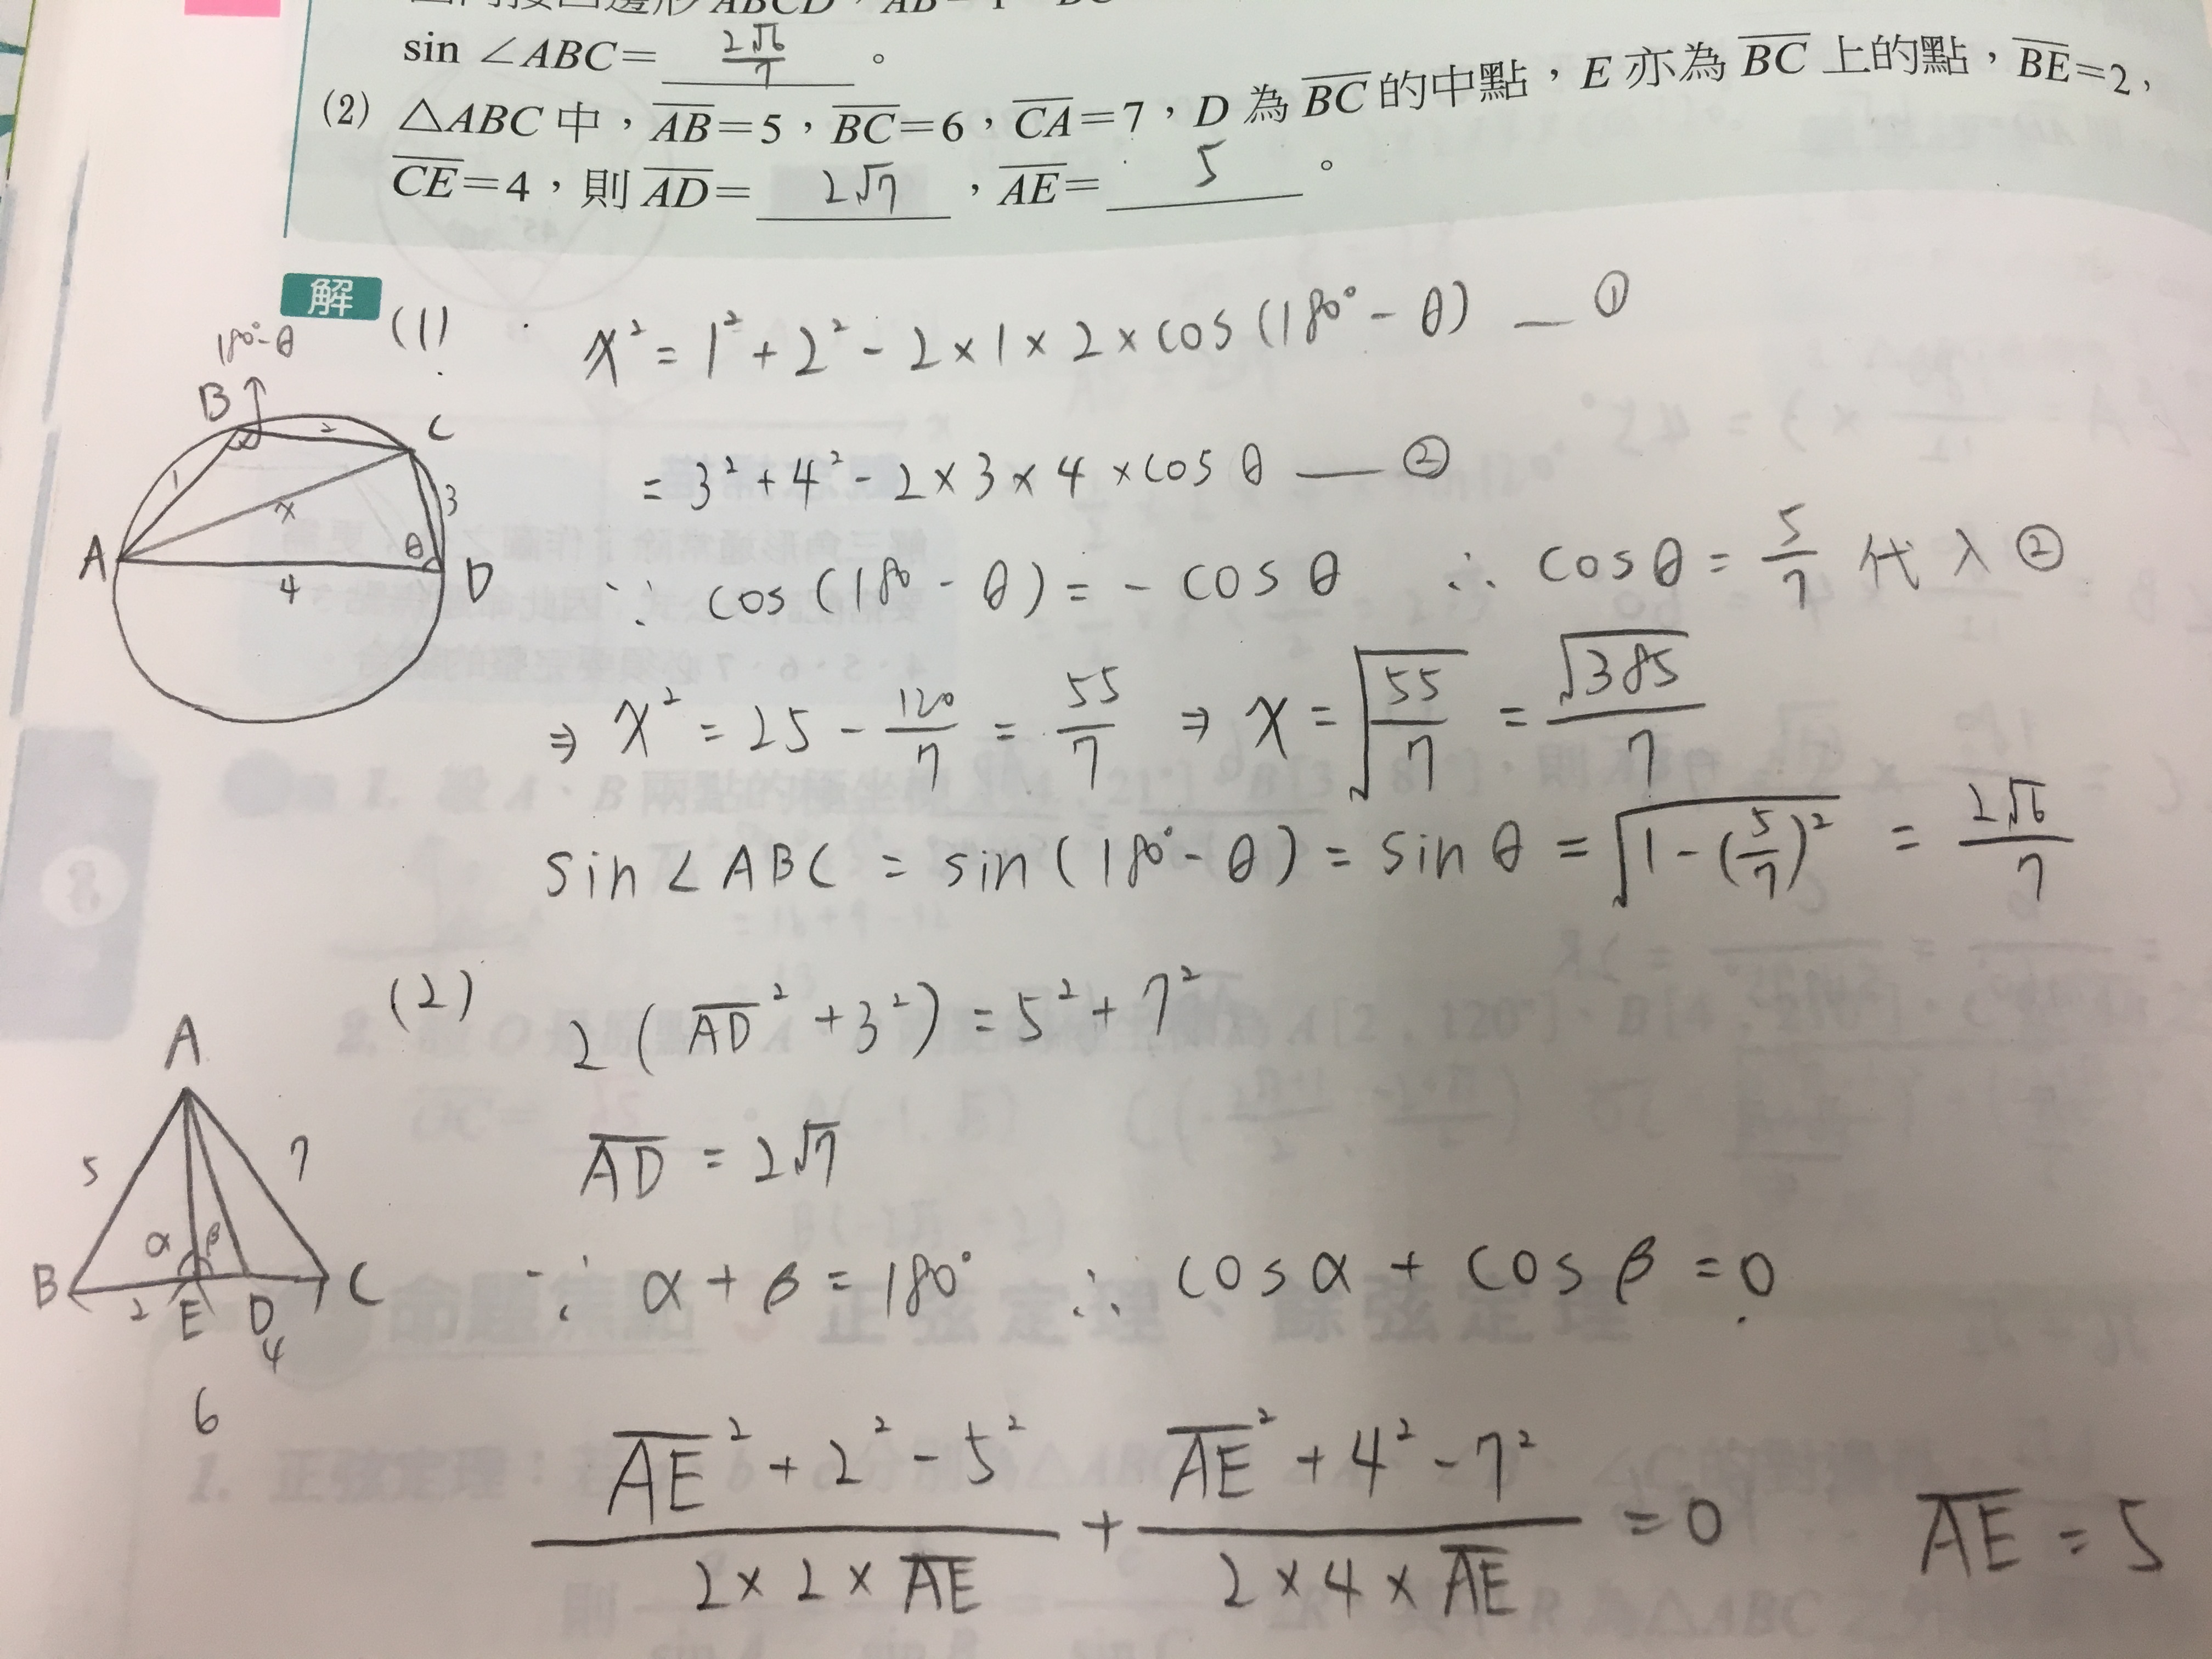 ABCD，AB=1
sin ∠ABC= 2√6/7 。
(2) △ABC 中，AB=5，BC=6，CA=7，D 為 BC 的中點，E 亦為 BC 上的點，BE=2，
CE=4，則 AD= 2√7 ，AE= 5 。
解
(1) x² = 1² + 2² - 2×1×2×cos(180° - θ) — ①
= 3² + 4² - 2×3×4×cosθ — ②
∵ cos(180 - θ) = - cosθ ∴ cosθ = 5/7 代入②
⇒ x² = 25 - 120/7 = 55/7 ⇒ x = √(55/7) = √385/7
sin∠ABC = sin(180° - θ) = sinθ = √(1-(5/7)²) = 2√6/7
180°-θ
B
C
A
D
1
2
3
4
x
θ
(2) 2(AD² + 3²) = 5² + 7²
AD = 2√7
∵ α + β = 180° ∴ cosα + cosβ = 0
(AE² + 2² - 5²)/(2×2×AE) + (AE² + 4² - 7²)/(2×4×AE) = 0 AE = 5
A
5
7
α β
B
2
E
D
C
4
6